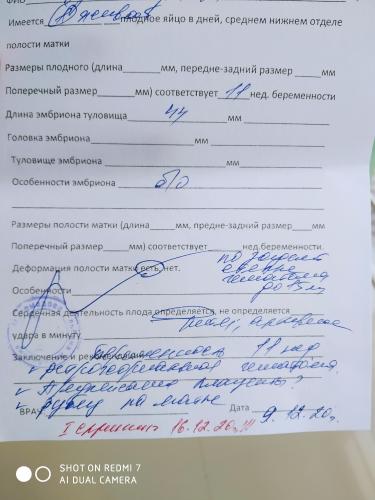 Имеется плодное яйцо в дней, среднем нижнем отделе
полости матки
Размеры плодного (длина______мм, передне-задний размер _____мм
Поперечный размер______мм) соответствует 11 нед. беременности
Длина эмбриона туловища 44 мм
Головка эмбриона______мм
Туловище эмбриона______мм
Особенности эмбриона б/о
Размеры полости матки (длина______мм, предне-задний размер ____мм
Поперечный размер____мм) соответствует____нед.беременности.
Деформация полости матки есть, нет.
по задней
до 15 мм
Особенности
Сердечная деятельность плода определяется, не определяется
удара в минуту
Заключение и рекомендации Беременность 11 нед
ретрохориальная гематома.
Предлежание плаценты?
рубец на матке
ВРАЧ Дата 9.12.20г.
I скрининг 16.12.20г.!!!
SHOT ON REDMI 7
AI DUAL CAMERA